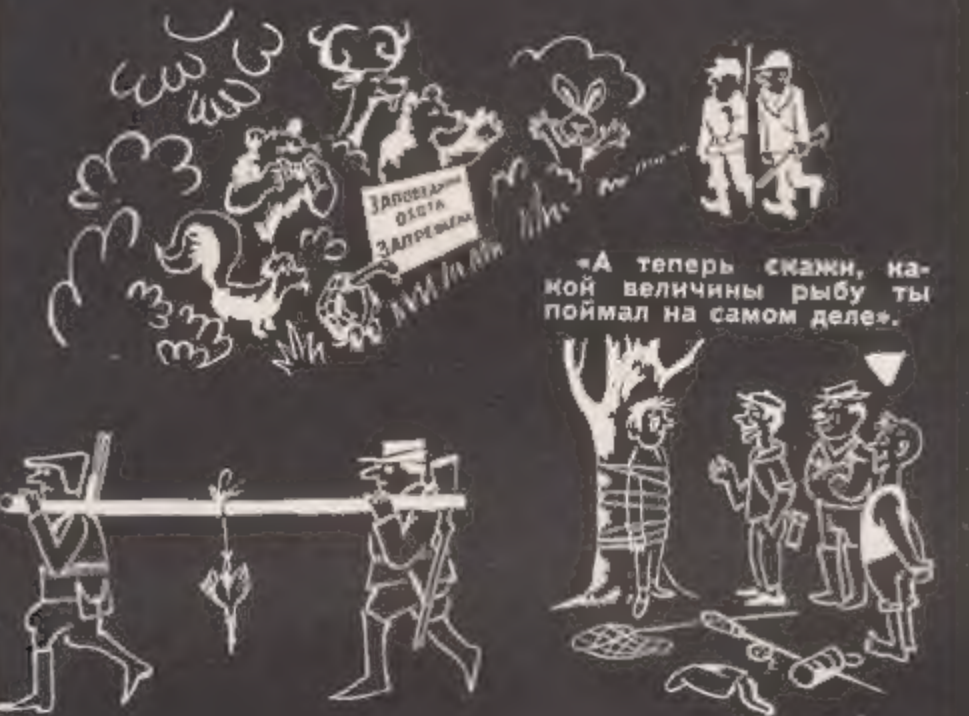 ЗАПОВЕДНИК
ОХОТА
ЗАПРЕЩЕНА
«А теперь скажи, ка-
кой величины рыбу ты
поймал на самом деле».